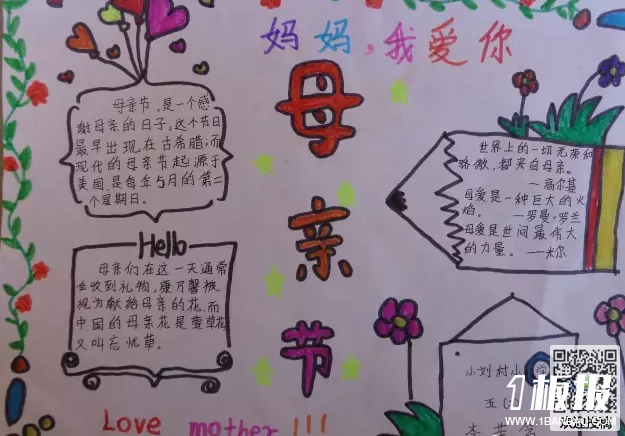 妈妈,我爱你
母亲节
母亲节,是一个感
谢母亲的日子,这个节日
最早出现在古希腊;而
现代的母亲节起源于
美国,是每年5月的第二
个星期日。
Hello
母亲们在这一天通常
会收到礼物,康乃馨被
视为献给母亲的花,而
中国的母亲花是萱草花,
又叫忘忧草。
Love mother !!!
世界上的一切光荣和
骄傲,都来自母亲。
—高尔基
母爱是一种巨大的火
焰。 —罗曼·罗兰
母爱是世间最伟大
的力量。 —米尔
小刘村小学
板报
WWW.1BANBAO.COM
欢迎投稿